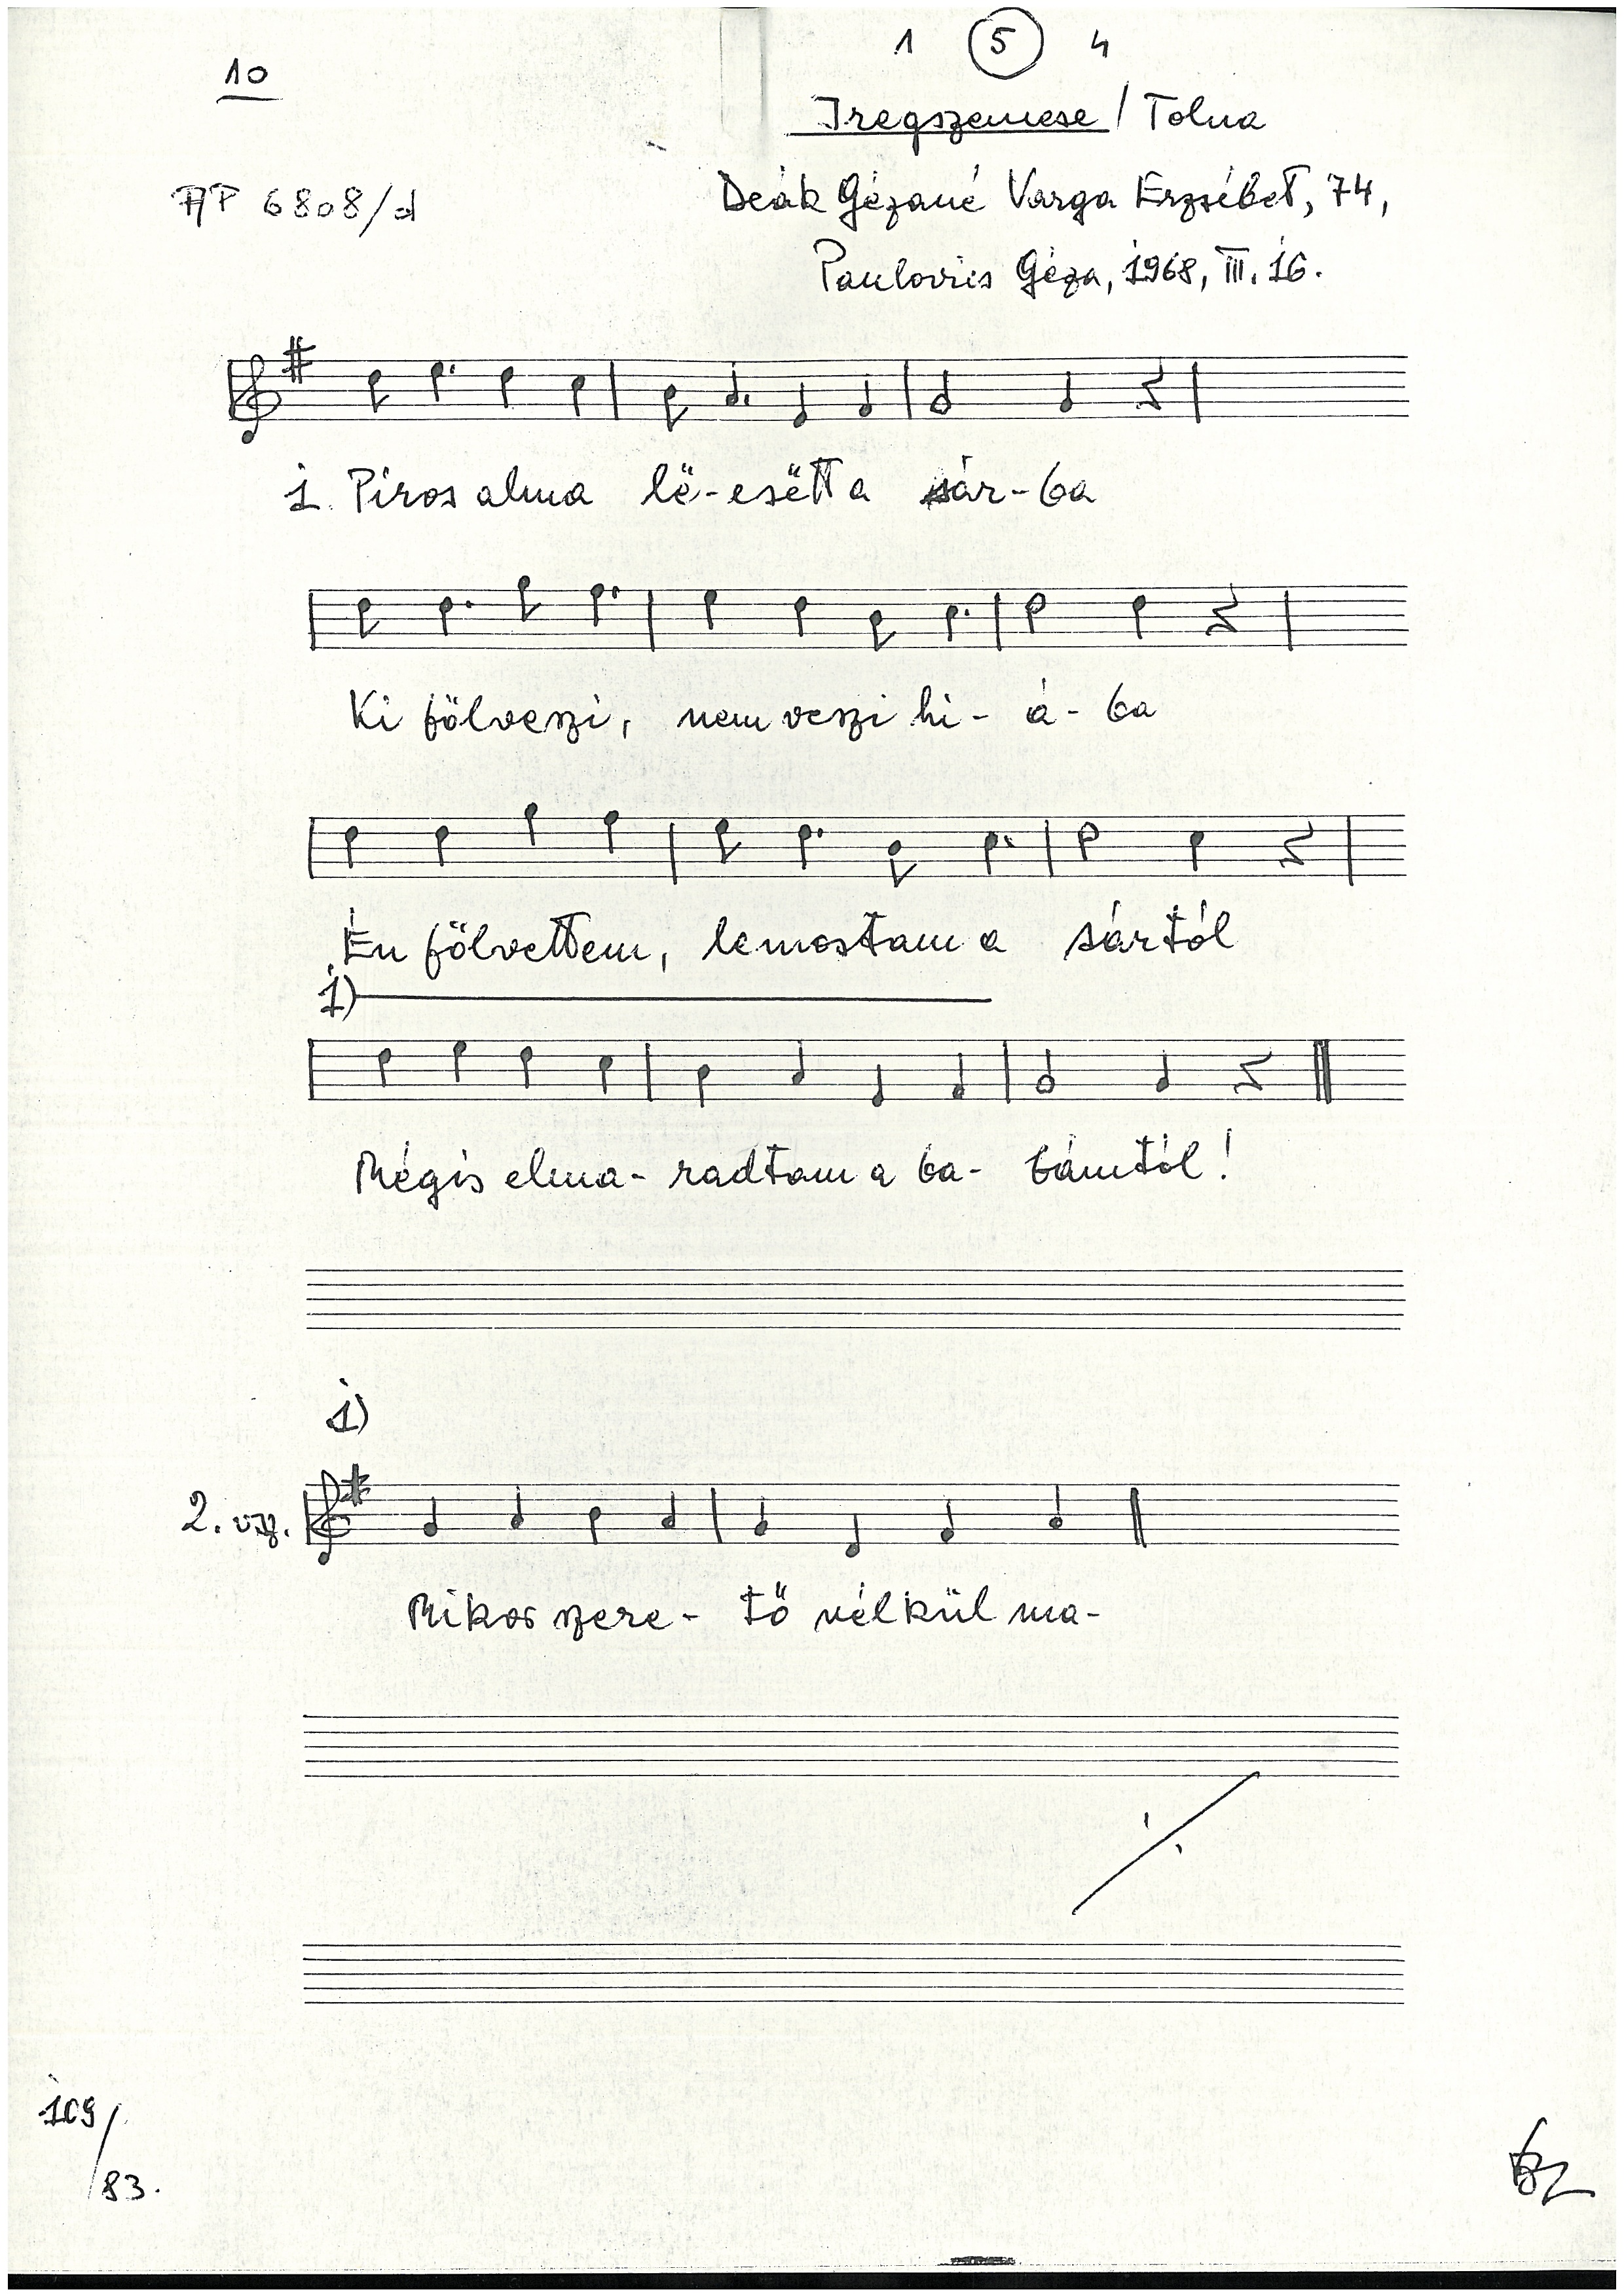 10
1 5 4
Iregszemcse / Tolna
AP 6808/d
Deák Gézané Varga Erzsébet, 74,
Paulovics Géza, 1968, III. 16.
1. Piros alma lë-esëtt a sár-ba
Ki fölveszi, nem veszi hi- á- ba
Én fölvettem, lemostam a sártól
1)
Mégis elma- radtam a ba- bámtól!
1)
2. vsz.
Mikor szere- tő nélkül ma-
109/
83.